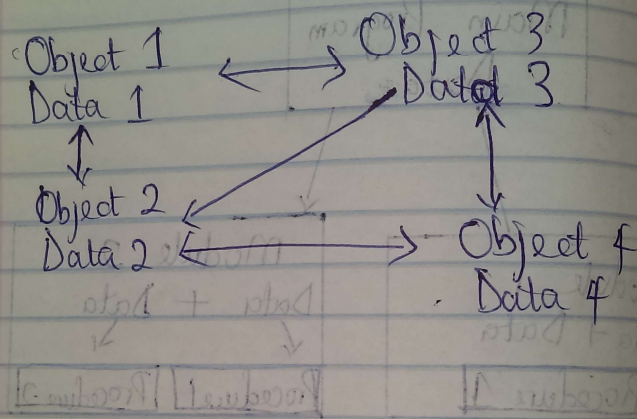 Object 1
Data 1
Object 3
Data 3
Object 2
Data 2
Object 4
Data 4